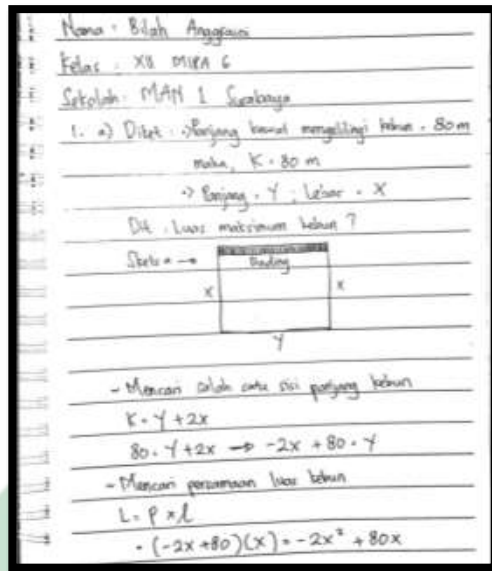 Nama : Bilah Anggraini
Kelas : XII MIPA 6
Sekolah : MAN 1 Surabaya
1. a) Diket : -> Panjang kawat mengelilingi kebun = 80 m
maka, K = 80 m
-> Panjang = Y ; Lebar = X
Dit : Luas maksimum kebun ?
Sketsa ->
Dinding
X X
Y
- Mencari salah satu sisi panjang kebun
K = Y + 2x
80 = Y + 2x -> -2x + 80 = Y
- Mencari persamaan luas kebun
L = P x l
= (-2x +80)(x) = -2x² + 80x